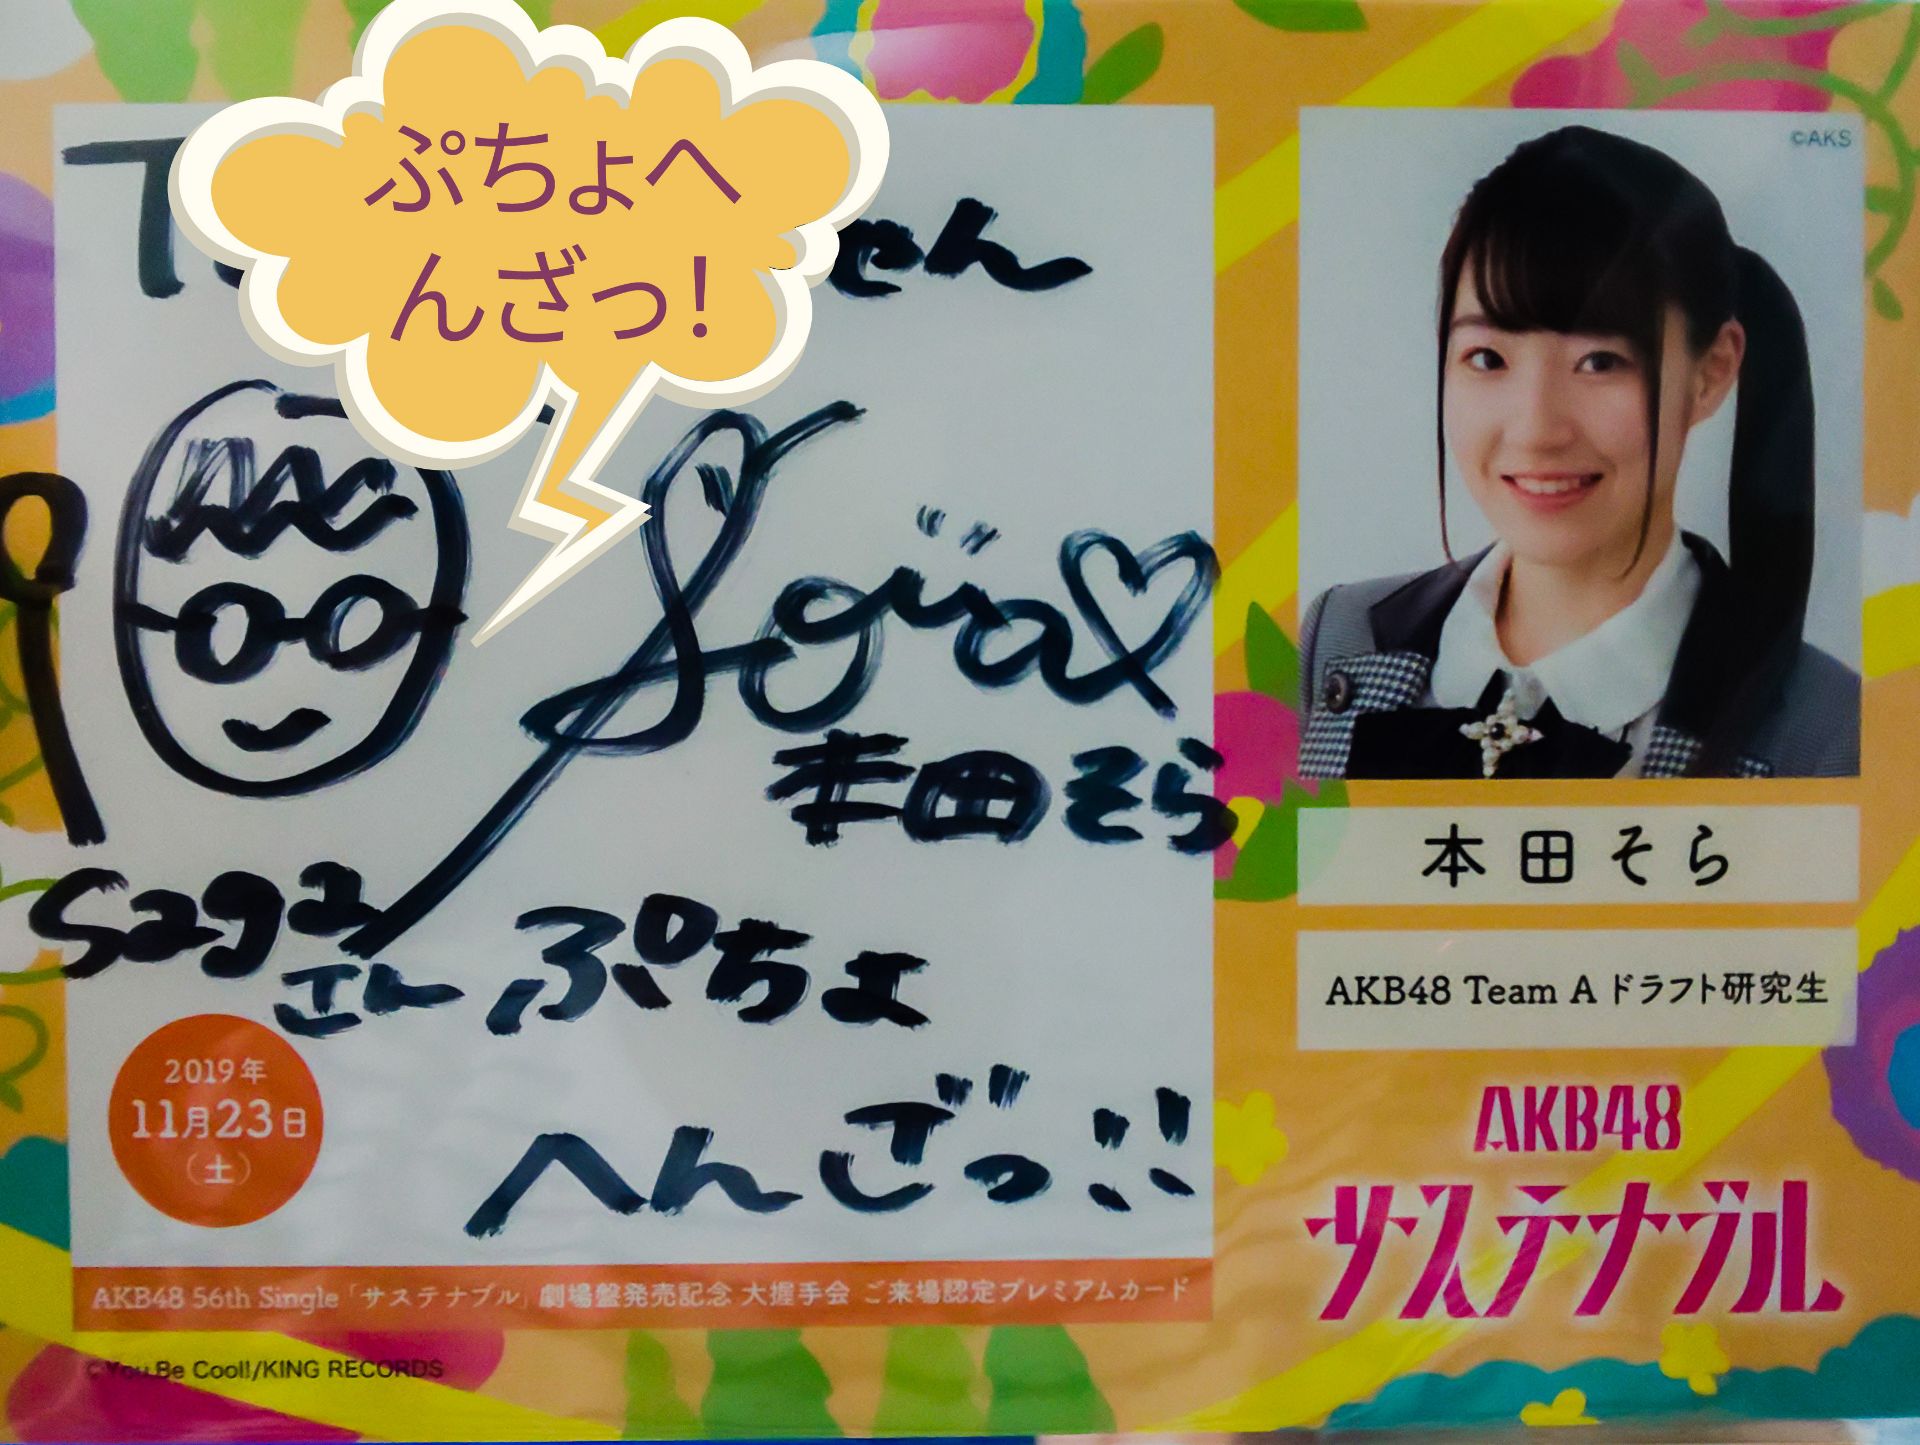 ぷちょへ
んざっ!
ちゃん
Sora
本田そら
sagaさん
ぷちょ
へんざっ!!
2019年
11月23日
(土)
AKB48 56th Single「サステナブル」劇場盤発売記念 大握手会 ご来場認定プレミアムカード
©You, Be Cool!/KING RECORDS
©AKS
本田そら
AKB48 Team A ドラフト研究生
AKB48
サステナブル